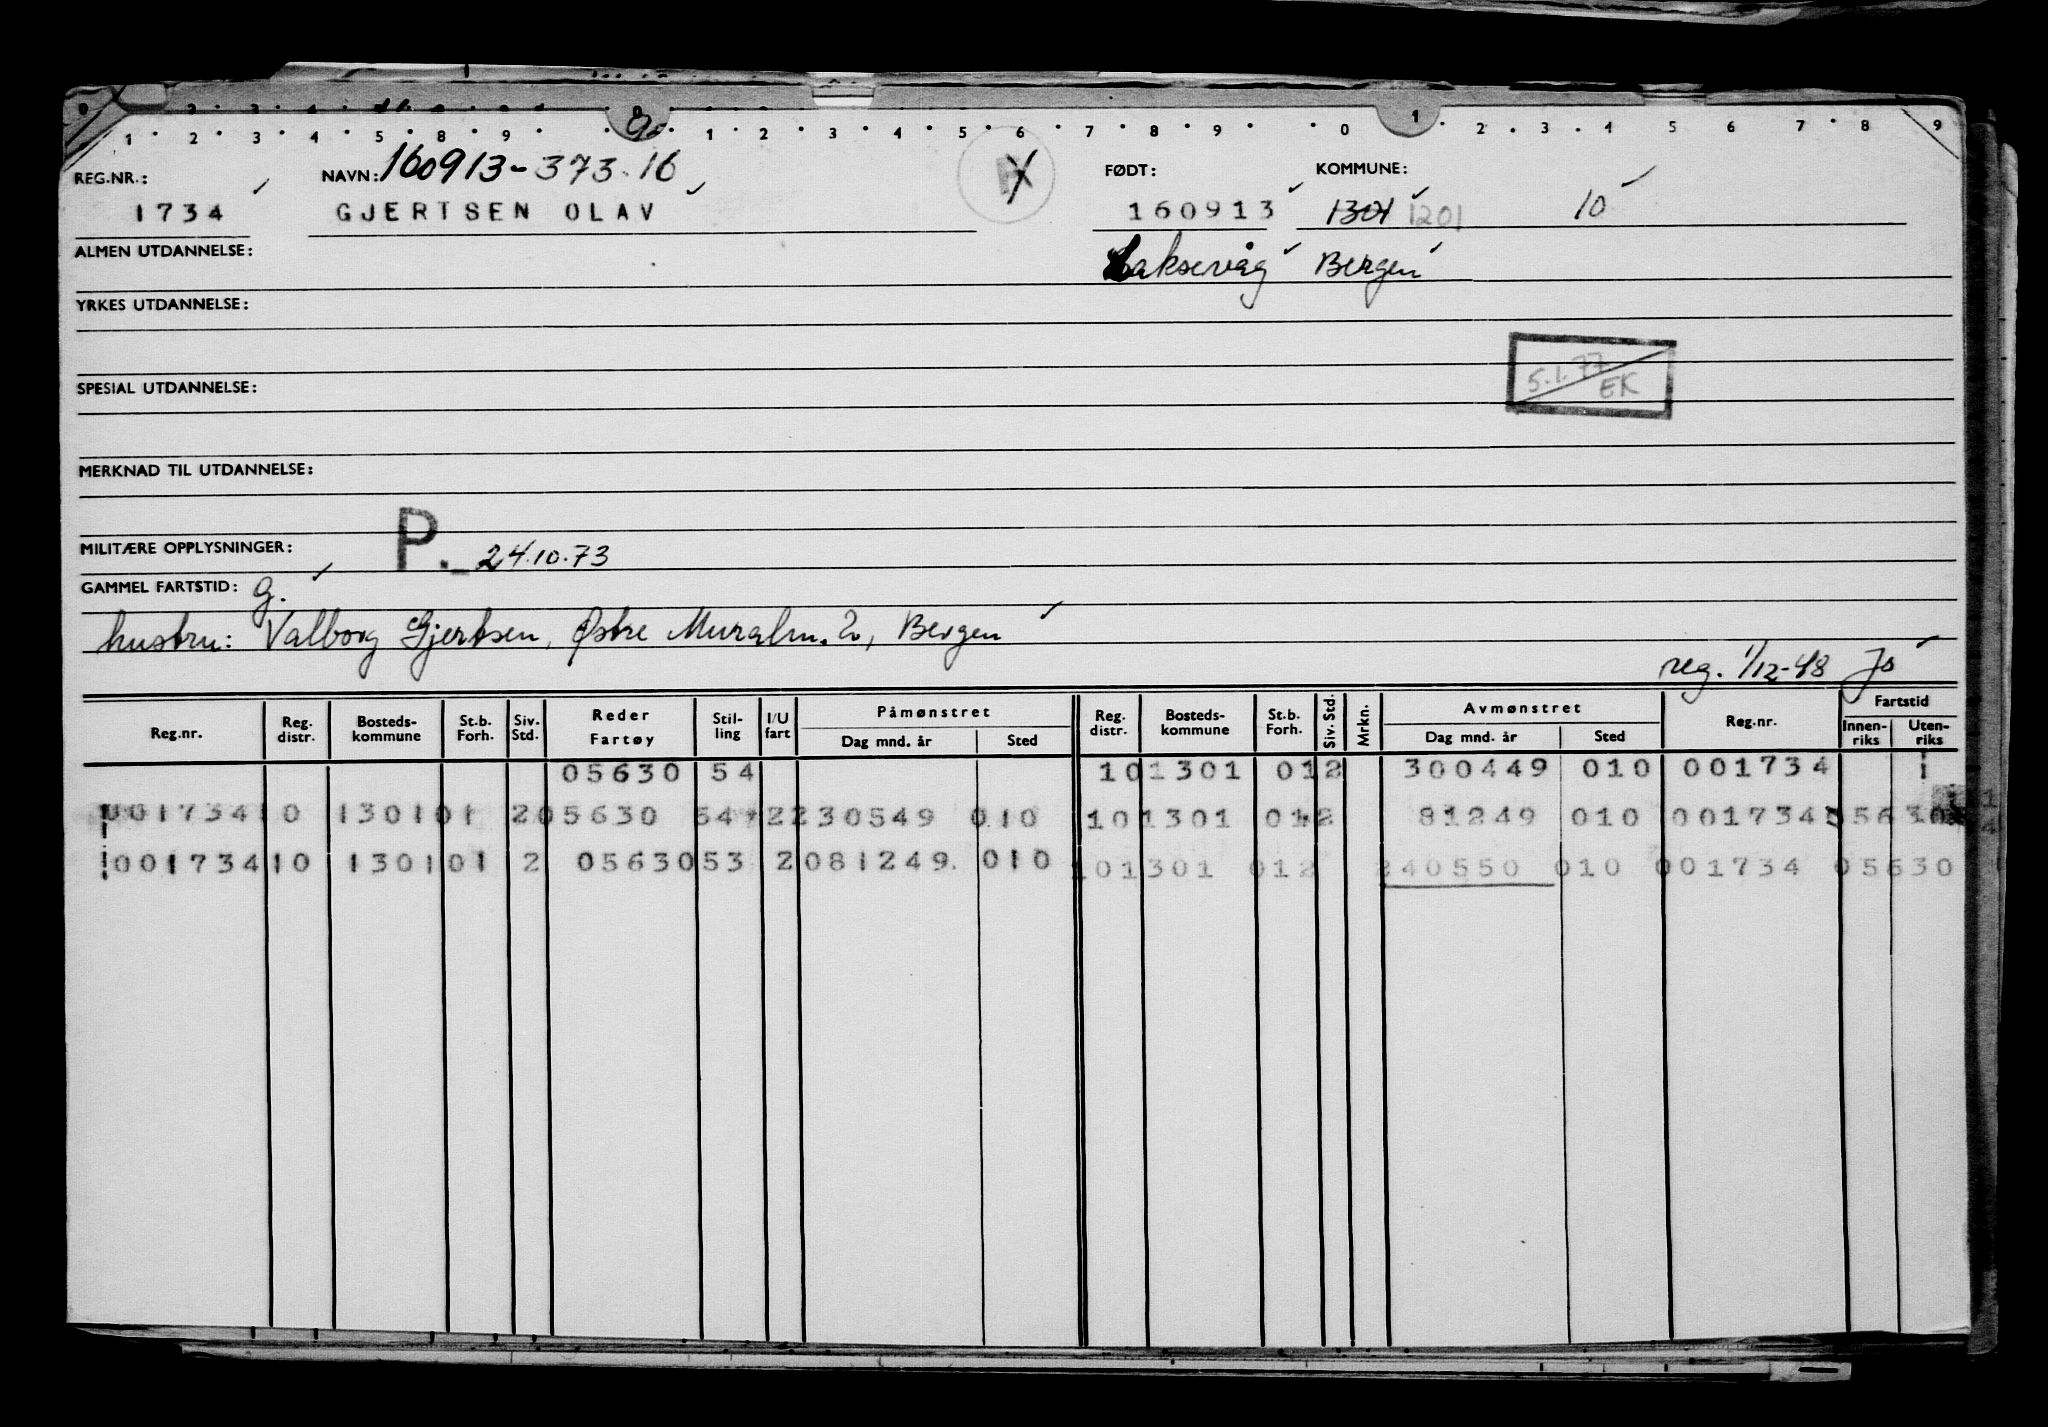 1 2 3 4 5 8 9 9 1 2 3 4 5 6 7 8 9 0 1 2 3 4 5 6 7 8 9
REG.NR.: NAVN: 160913-373.16 FØDT: KOMMUNE:
1734 GJERTSEN OLAV 160913 1301 1201 10
ALMEN UTDANNELSE: Laksevåg Bergen
YRKES UTDANNELSE:
5.1.77 EK
SPESIAL UTDANNELSE:
MERKNAD TIL UTDANNELSE:
MILITÆRE OPPLYSNINGER: P. 24.10.73
GAMMEL FARTSTID: g.
hustru: Valborg Gjertsen, Østre Muralm. 2, Bergen
reg. 1/12-48 Js
Reg.nr. Reg. distr. Bosteds-kommune St.b. Forh. Siv. Std. Reder Fartøy Stil-ling I/U fart Påmønstret Dag mnd. år Sted Reg. distr. Bosteds-kommune St.b. Forh. Siv. Std. Mrkn. Avmønstret Dag mnd. år Sted Reg.nr. Fartstid Innen-riks Uten-riks
05630 54 10 1301 01 2 300449 010 001734
001734 10 1301 01 2 05630 54 2 230549 010 10 1301 01 2 81249 010 001734 05630
001734 10 1301 01 2 05630 53 2 081249 010 10 1301 01 2 240550 010 001734 05630